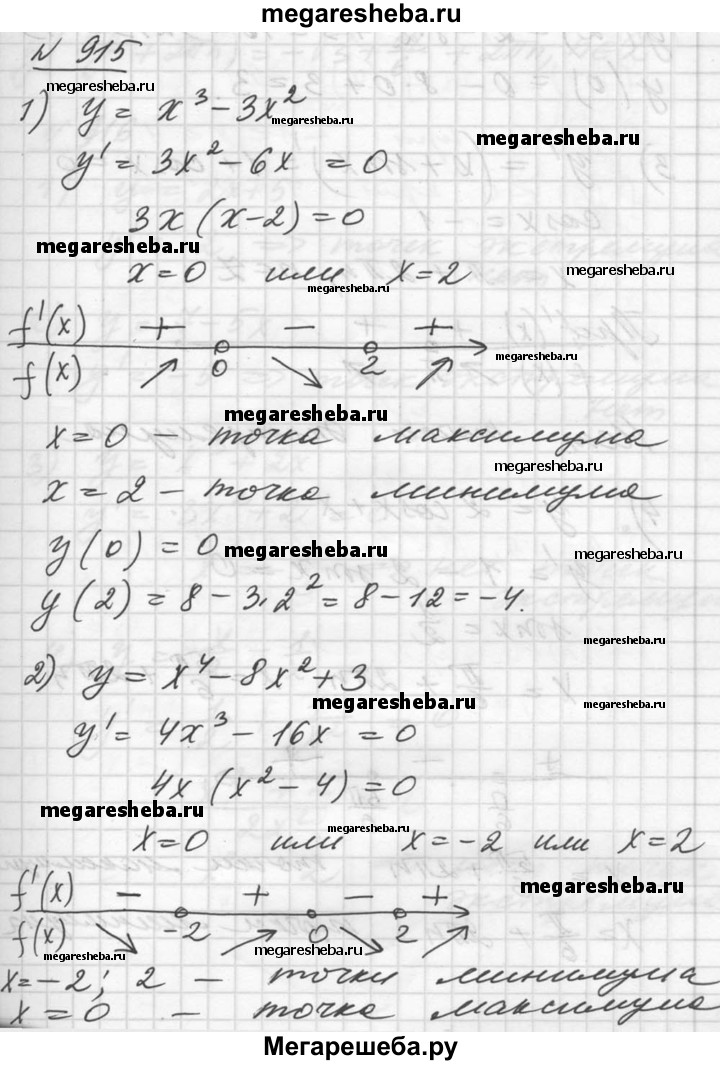 megaresheba.ru
N 915
megaresheba.ru
1) y = x³ - 3x²
megaresheba.ru
y' = 3x² - 6x = 0
megaresheba.ru
3x (x - 2) = 0
megaresheba.ru
x = 0 или x = 2
megaresheba.ru
megaresheba.ru
f'(x) + - +
0 2
megaresheba.ru
f(x) ↗ ↘ ↗
megaresheba.ru
x = 0 - точка максимума
megaresheba.ru
x = 2 - точка минимума
y(0) = 0
megaresheba.ru
megaresheba.ru
y(2) = 8 - 3·2² = 8 - 12 = -4.
megaresheba.ru
2) y = x⁴ - 8x² + 3
megaresheba.ru
megaresheba.ru
y' = 4x³ - 16x = 0
4x (x² - 4) = 0
megaresheba.ru
megaresheba.ru
x = 0 или x = -2 или x = 2
f'(x) - + - +
megaresheba.ru
-2 0 2
f(x) ↘ ↗ ↘ ↗
megaresheba.ru
megaresheba.ru
x = -2; 2 - точки минимума
x = 0 - точка максимума
Мегарешеба.ру